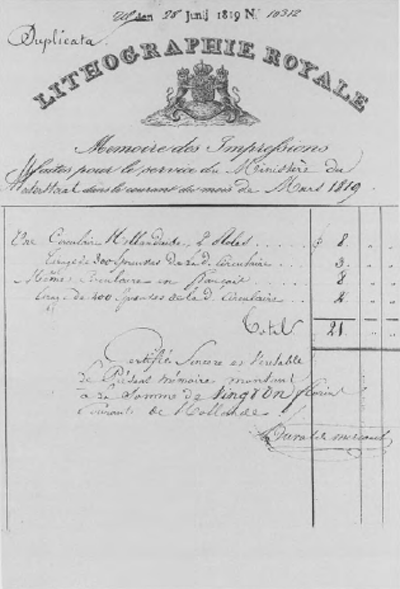 den 28 Junij 1819 N. 10312
Duplicata
LITHOGRAPHIE ROYALE
Memoire des Impressions
faites pour le service du Ministère du
Waterstaat dans le courant des mois de Mars 1819.
Une Circulaire Hollandaise, 2 Roles .... 8. " "
Tirage de 300 Epreuves de la d. Circulaire ... 3. " "
Même Circulaire en Français ... 8 " "
Tirage de 200 Epreuves de la d. Circulaire ... 2. " "
Total 21. " "
Certifié Sincere et Veritable
le Présent mémoire montant
a la Somme de Vingt Un florins
Courant de Hollande.